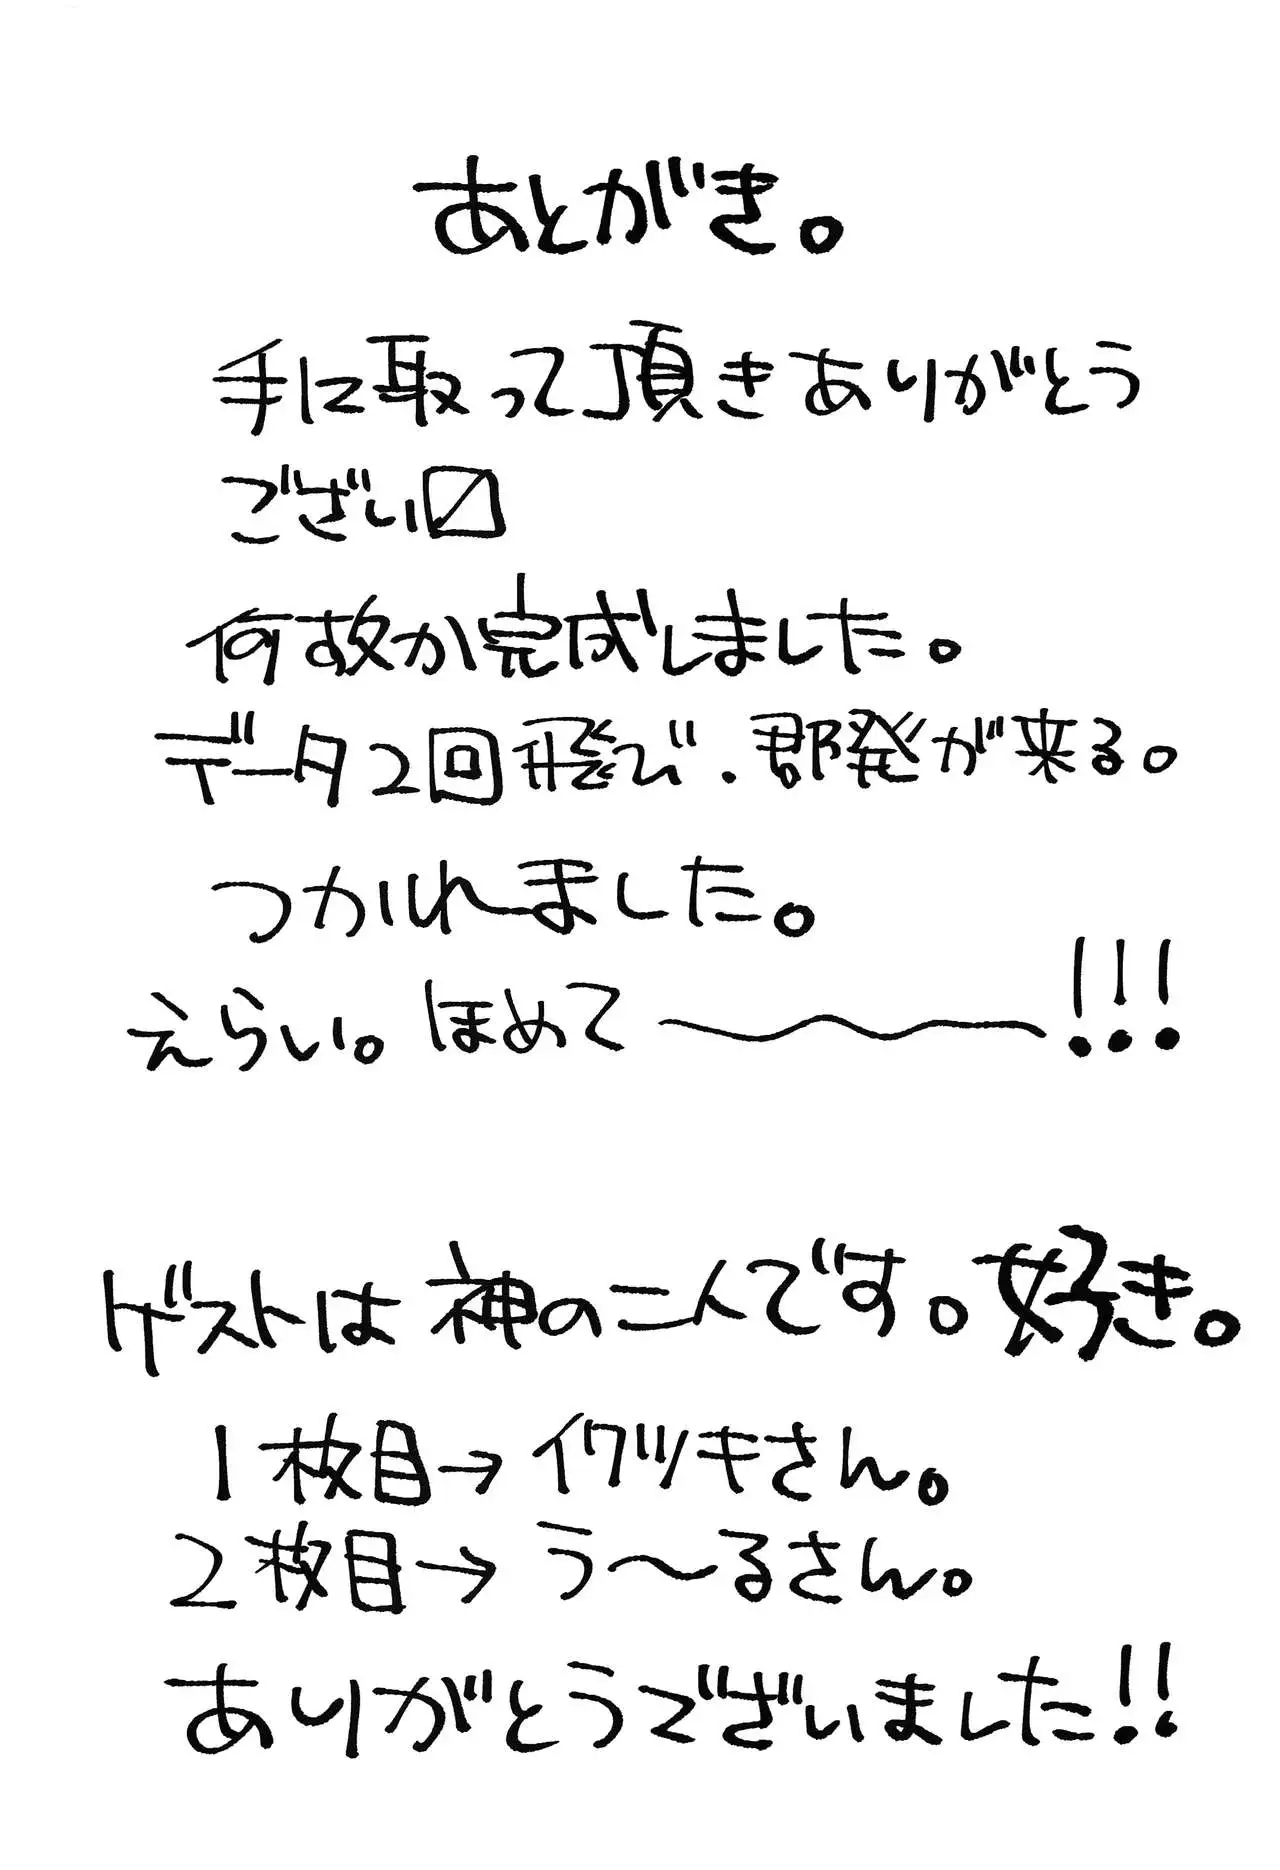 あとがき。
手に取って頂きありがとう
ござい〼
何故か完成しました。
データ2回飛び.郡発が来る。
つかれました。
えらい。ほめて〜!!!
ゲストは神の二人です。好き。
1枚目→イワツキさん。
2枚目→う〜るさん。
ありがとうございました!!